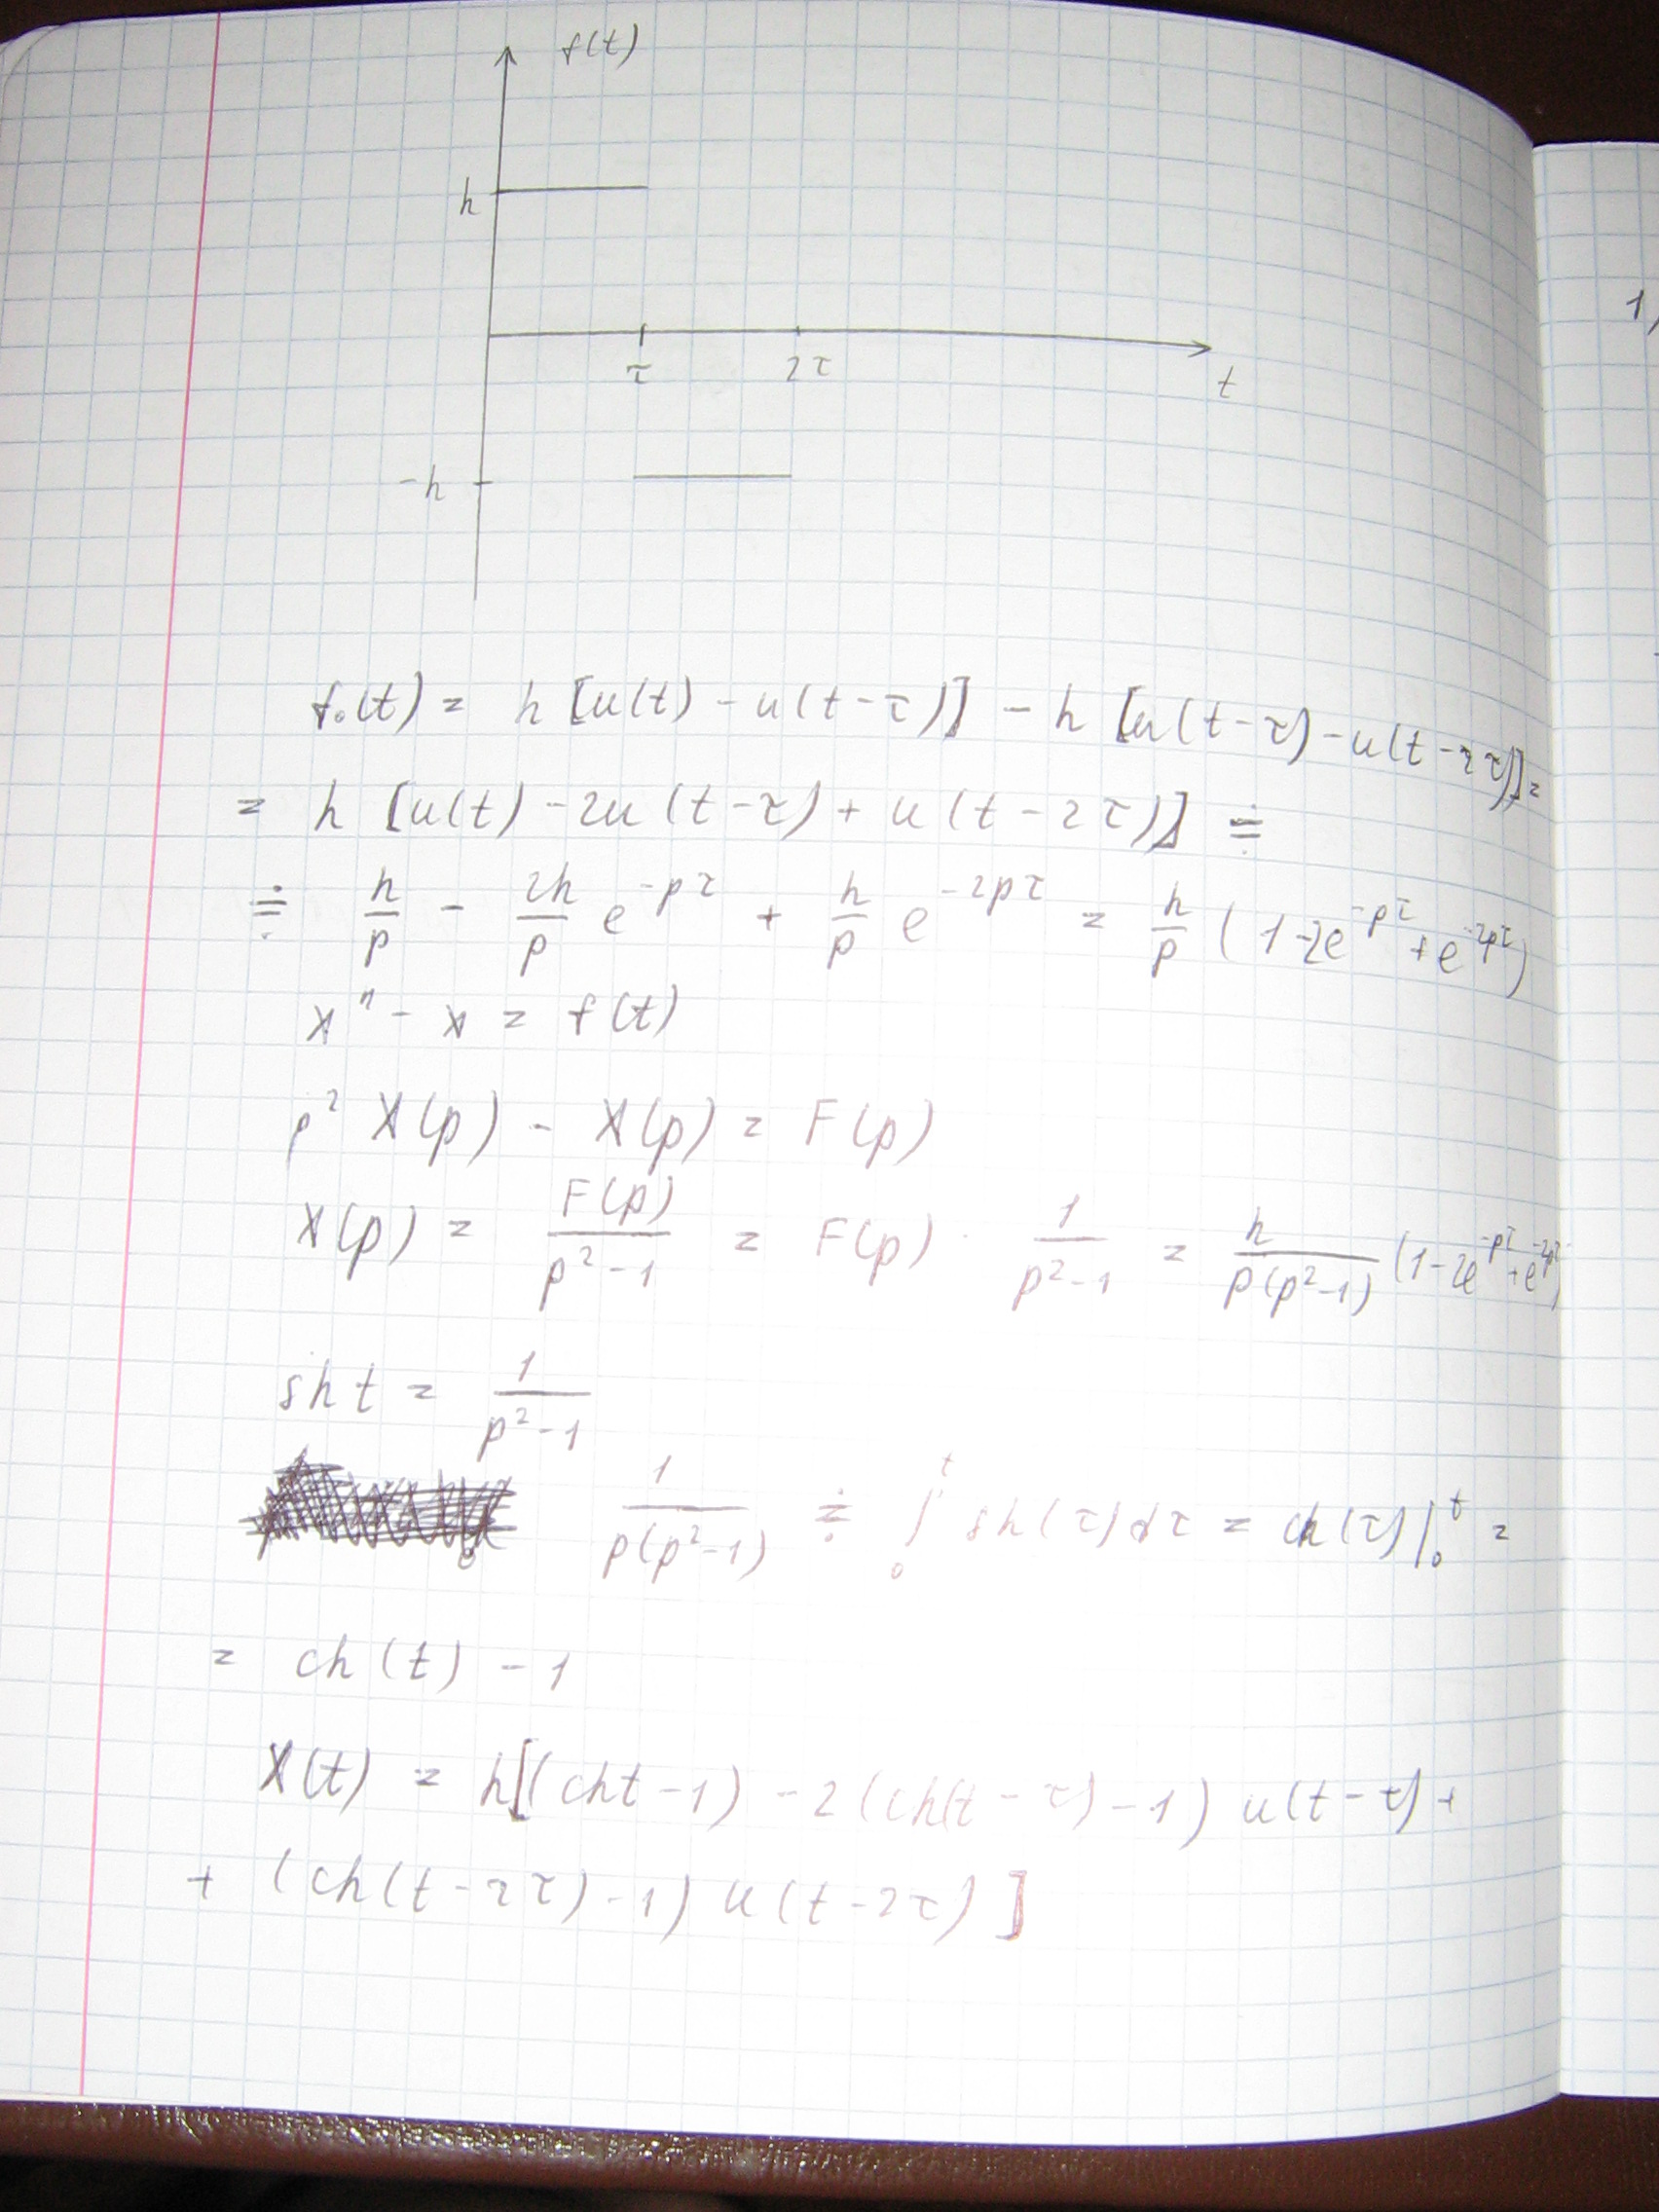 f(t)
h
τ 2τ
t
-h
f₀(t) = h [u(t) - u(t-τ)] - h [u(t-τ) - u(t-2τ)] =
= h [u(t) - 2u(t-τ) + u(t-2τ)] ≑
≑ h/p - 2h/p e^{-pτ} + h/p e^{-2pτ} = h/p (1-2e^{-pτ} + e^{-2pτ})
x'' - x = f(t)
p² X(p) - X(p) = F(p)
X(p) = F(p)/(p²-1) = F(p) · 1/(p²-1) = h/(p(p²-1)) (1-2e^{-pτ} + e^{-2pτ})
sh t = 1/(p²-1)
1/(p(p²-1)) ≑ ∫₀ᵗ sh(τ)dτ = ch(τ)|₀ᵗ =
= ch(t) - 1
X(t) = h[(cht-1) - 2(ch(t-τ)-1) u(t-τ) +
+ (ch(t-2τ)-1) u(t-2τ)]
1)